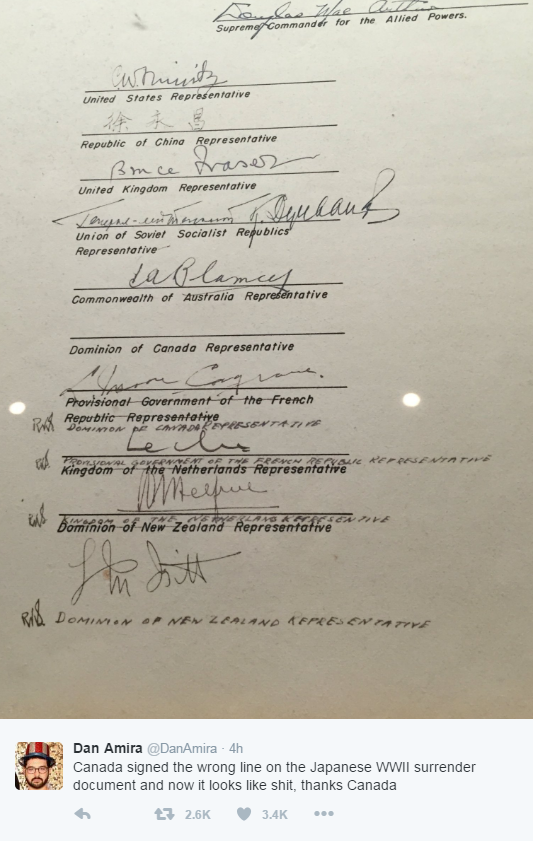 Douglas MacArthur
Supreme Commander for the Allied Powers.
C.W. Nimitz
United States Representative
徐永昌
Republic of China Representative
Bruce Fraser
United Kingdom Representative
Union of Soviet Socialist Republics
Representative
Commonwealth of Australia Representative
Dominion of Canada Representative
Cosgrave.
Provisional Government of the French
Republic Representative
DOMINION OF CANADA REPRESENTATIVE
PROVISIONAL GOVERNMENT OF THE FRENCH REPUBLIC REPRESENTATIVE
Kingdom of the Netherlands Representative
KINGDOM OF THE NETHERLAND REPRESENTATIVE
Dominion of New Zealand Representative
DOMINION OF NEW ZEALAND REPRESENTATIVE
Dan Amira @DanAmira · 4h
Canada signed the wrong line on the Japanese WWII surrender
document and now it looks like shit, thanks Canada
2.6K 3.4K